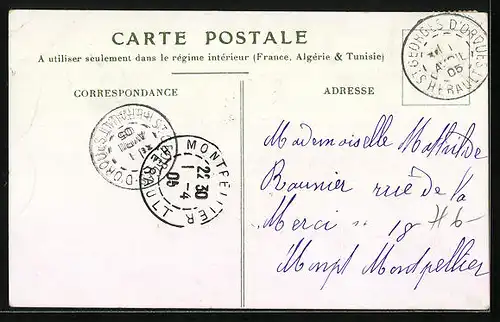 CARTE POSTALE
A utiliser seulement dans le régime intérieur (France, Algérie & Tunisie)
CORRESPONDANCE
ADRESSE
ST GEORGES D'ORQUES
1
AVRIL
05
HERAULT
D'ORQUES
1
AVRIL
05
MONTPELLIER
22 30
1 - 4
05
HERAULT
Mademoiselle Mathilde
Rounier rue de la
Merci 18
Montpellier